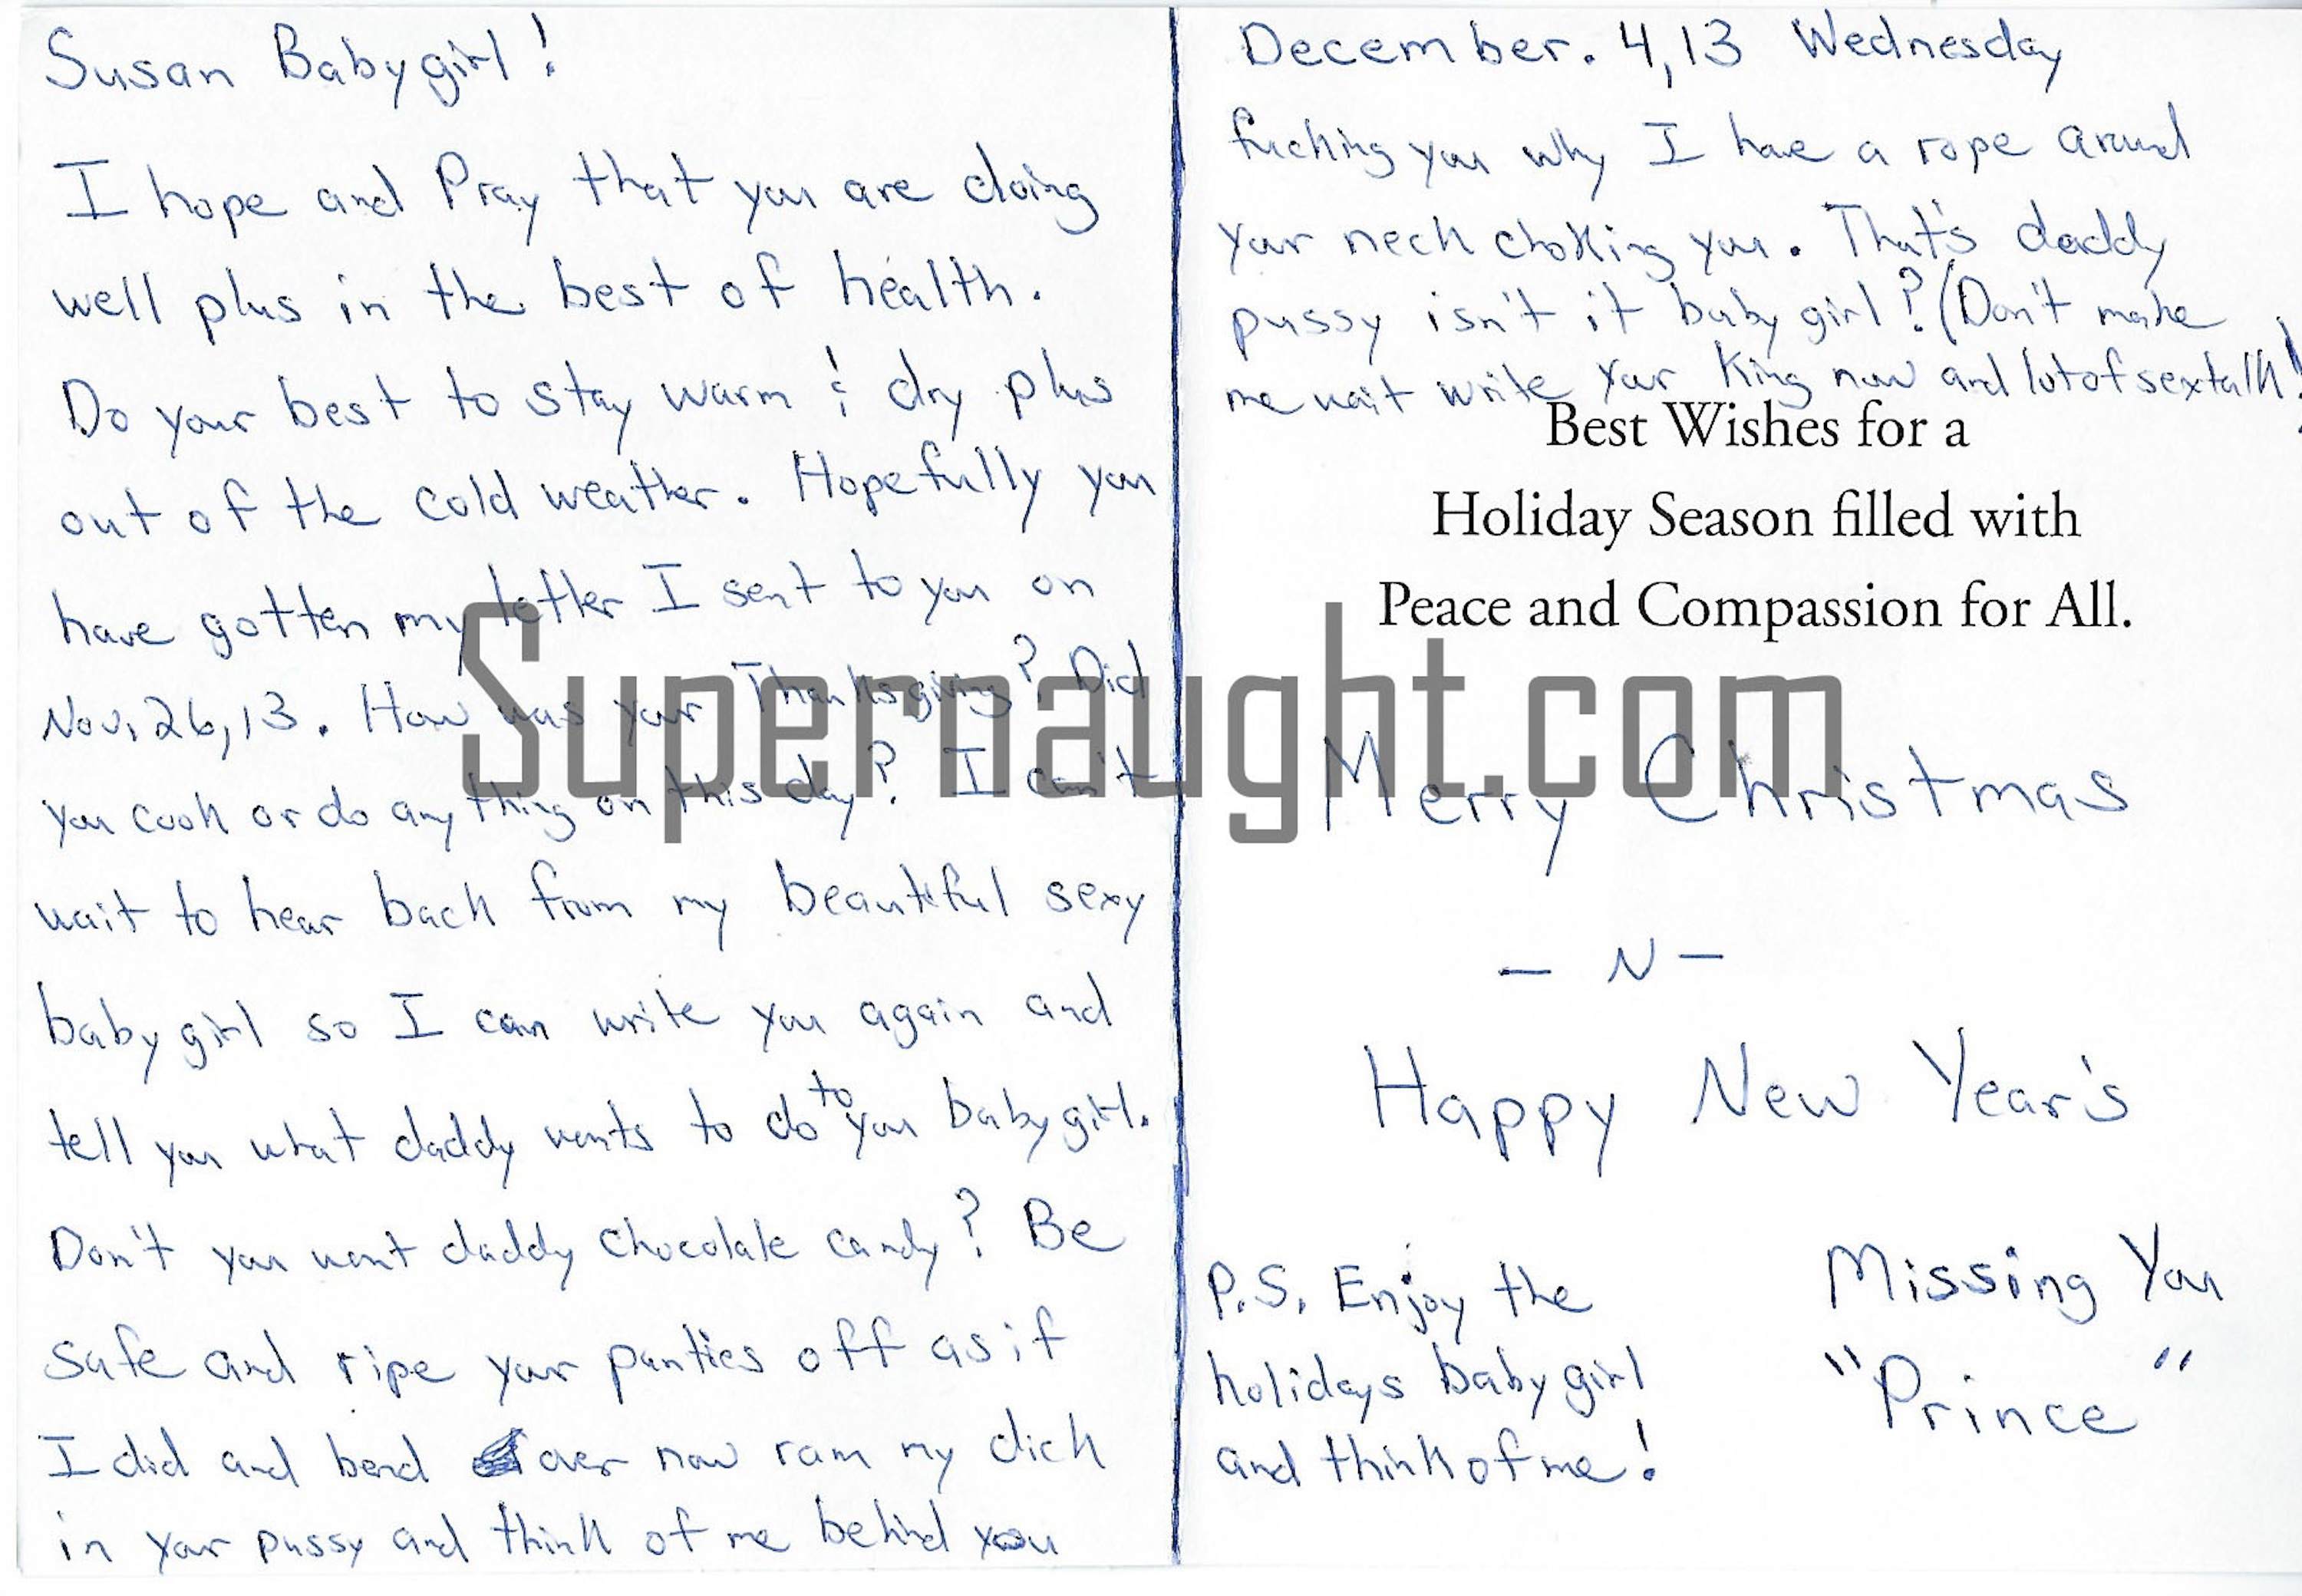 Susan Babygirl!
I hope and Pray that you are doing
well plus in the best of health.
Do your best to stay warm & dry plus
out of the cold weather. Hopefully you
have gotten my letter I sent to you on
Nov, 26, 13. How was your Thanksgiving? Did
you cook or do any thing on this day? I can't
wait to hear back from my beautiful sexy
baby girl so I can write you again and
tell you what daddy wants to do to you baby girl.
Don't you want daddy chocolate candy? Be
safe and ripe your panties off as if
I did and bend over now ram my dick
in your pussy and think of me behind you
December. 4, 13 Wednesday
fucking you why I have a rope around
your neck chokking you. That's daddy
pussy isn't it baby girl? (Don't make
me wait write your King now and lot of sex talk!
Best Wishes for a
Holiday Season filled with
Peace and Compassion for All.
Supernaught.com
Merry Christmas
- N -
Happy New Year's
P.S. Enjoy the
holidays baby girl
and think of me!
Missing You
"Prince"